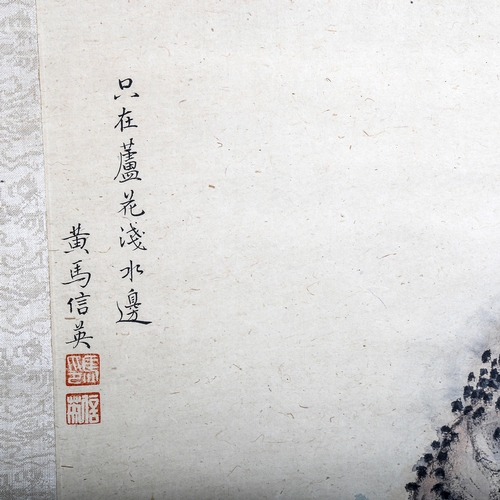 只在蘆花淺水邊
黄馬信英